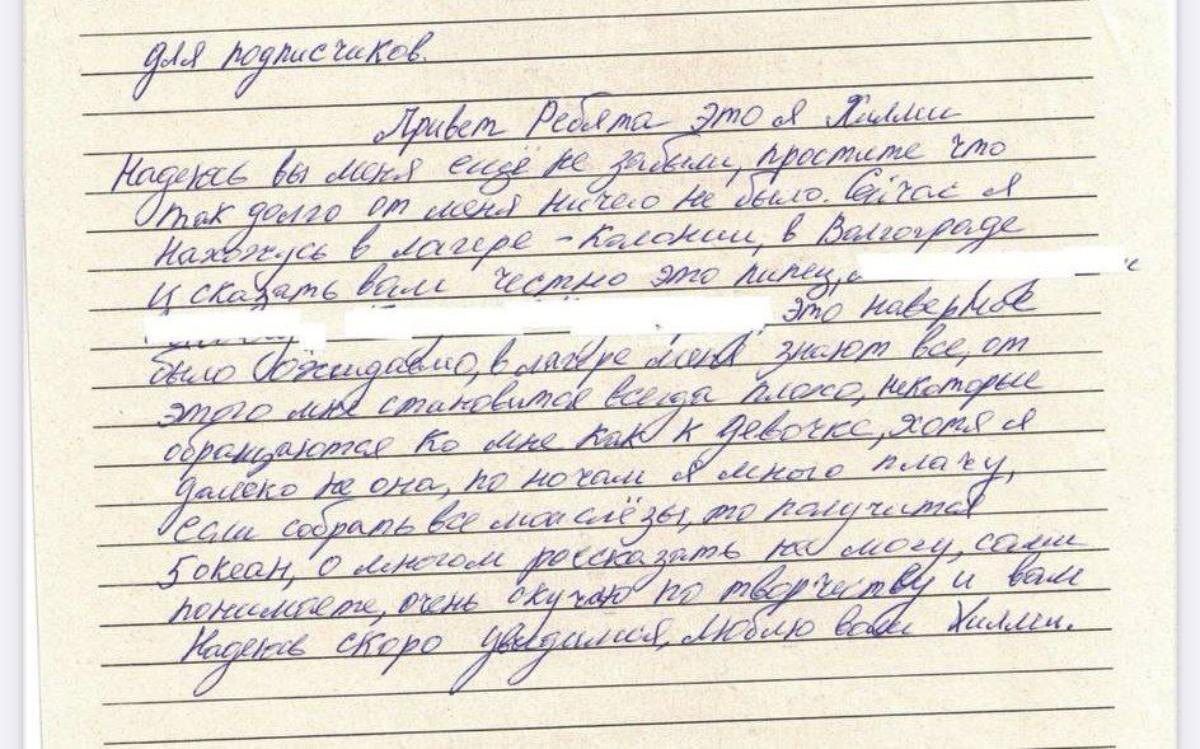 для подписчиков.
Привет Ребята это я Хилми
Надеюсь вы меня ещё не забыли, простите что
так долго от меня ничего не было. Сейчас я
нахожусь в лагере - колонии, в Волгограде
и сказать вам честно это пипец,
это наверное
было ожидаемо, в лагере меня знают все, от
этого мне становится всегда плохо, некоторые
обращаются ко мне как к девочке, хотя я
далеко не она, по ночам я много плачу,
если собрать все мои слёзы, то получится
5 океан, о многом рассказать не могу, сами
понимаете, очень скучаю по творчеству и вам
Надеюсь скоро увидимся, люблю вам Хилми.